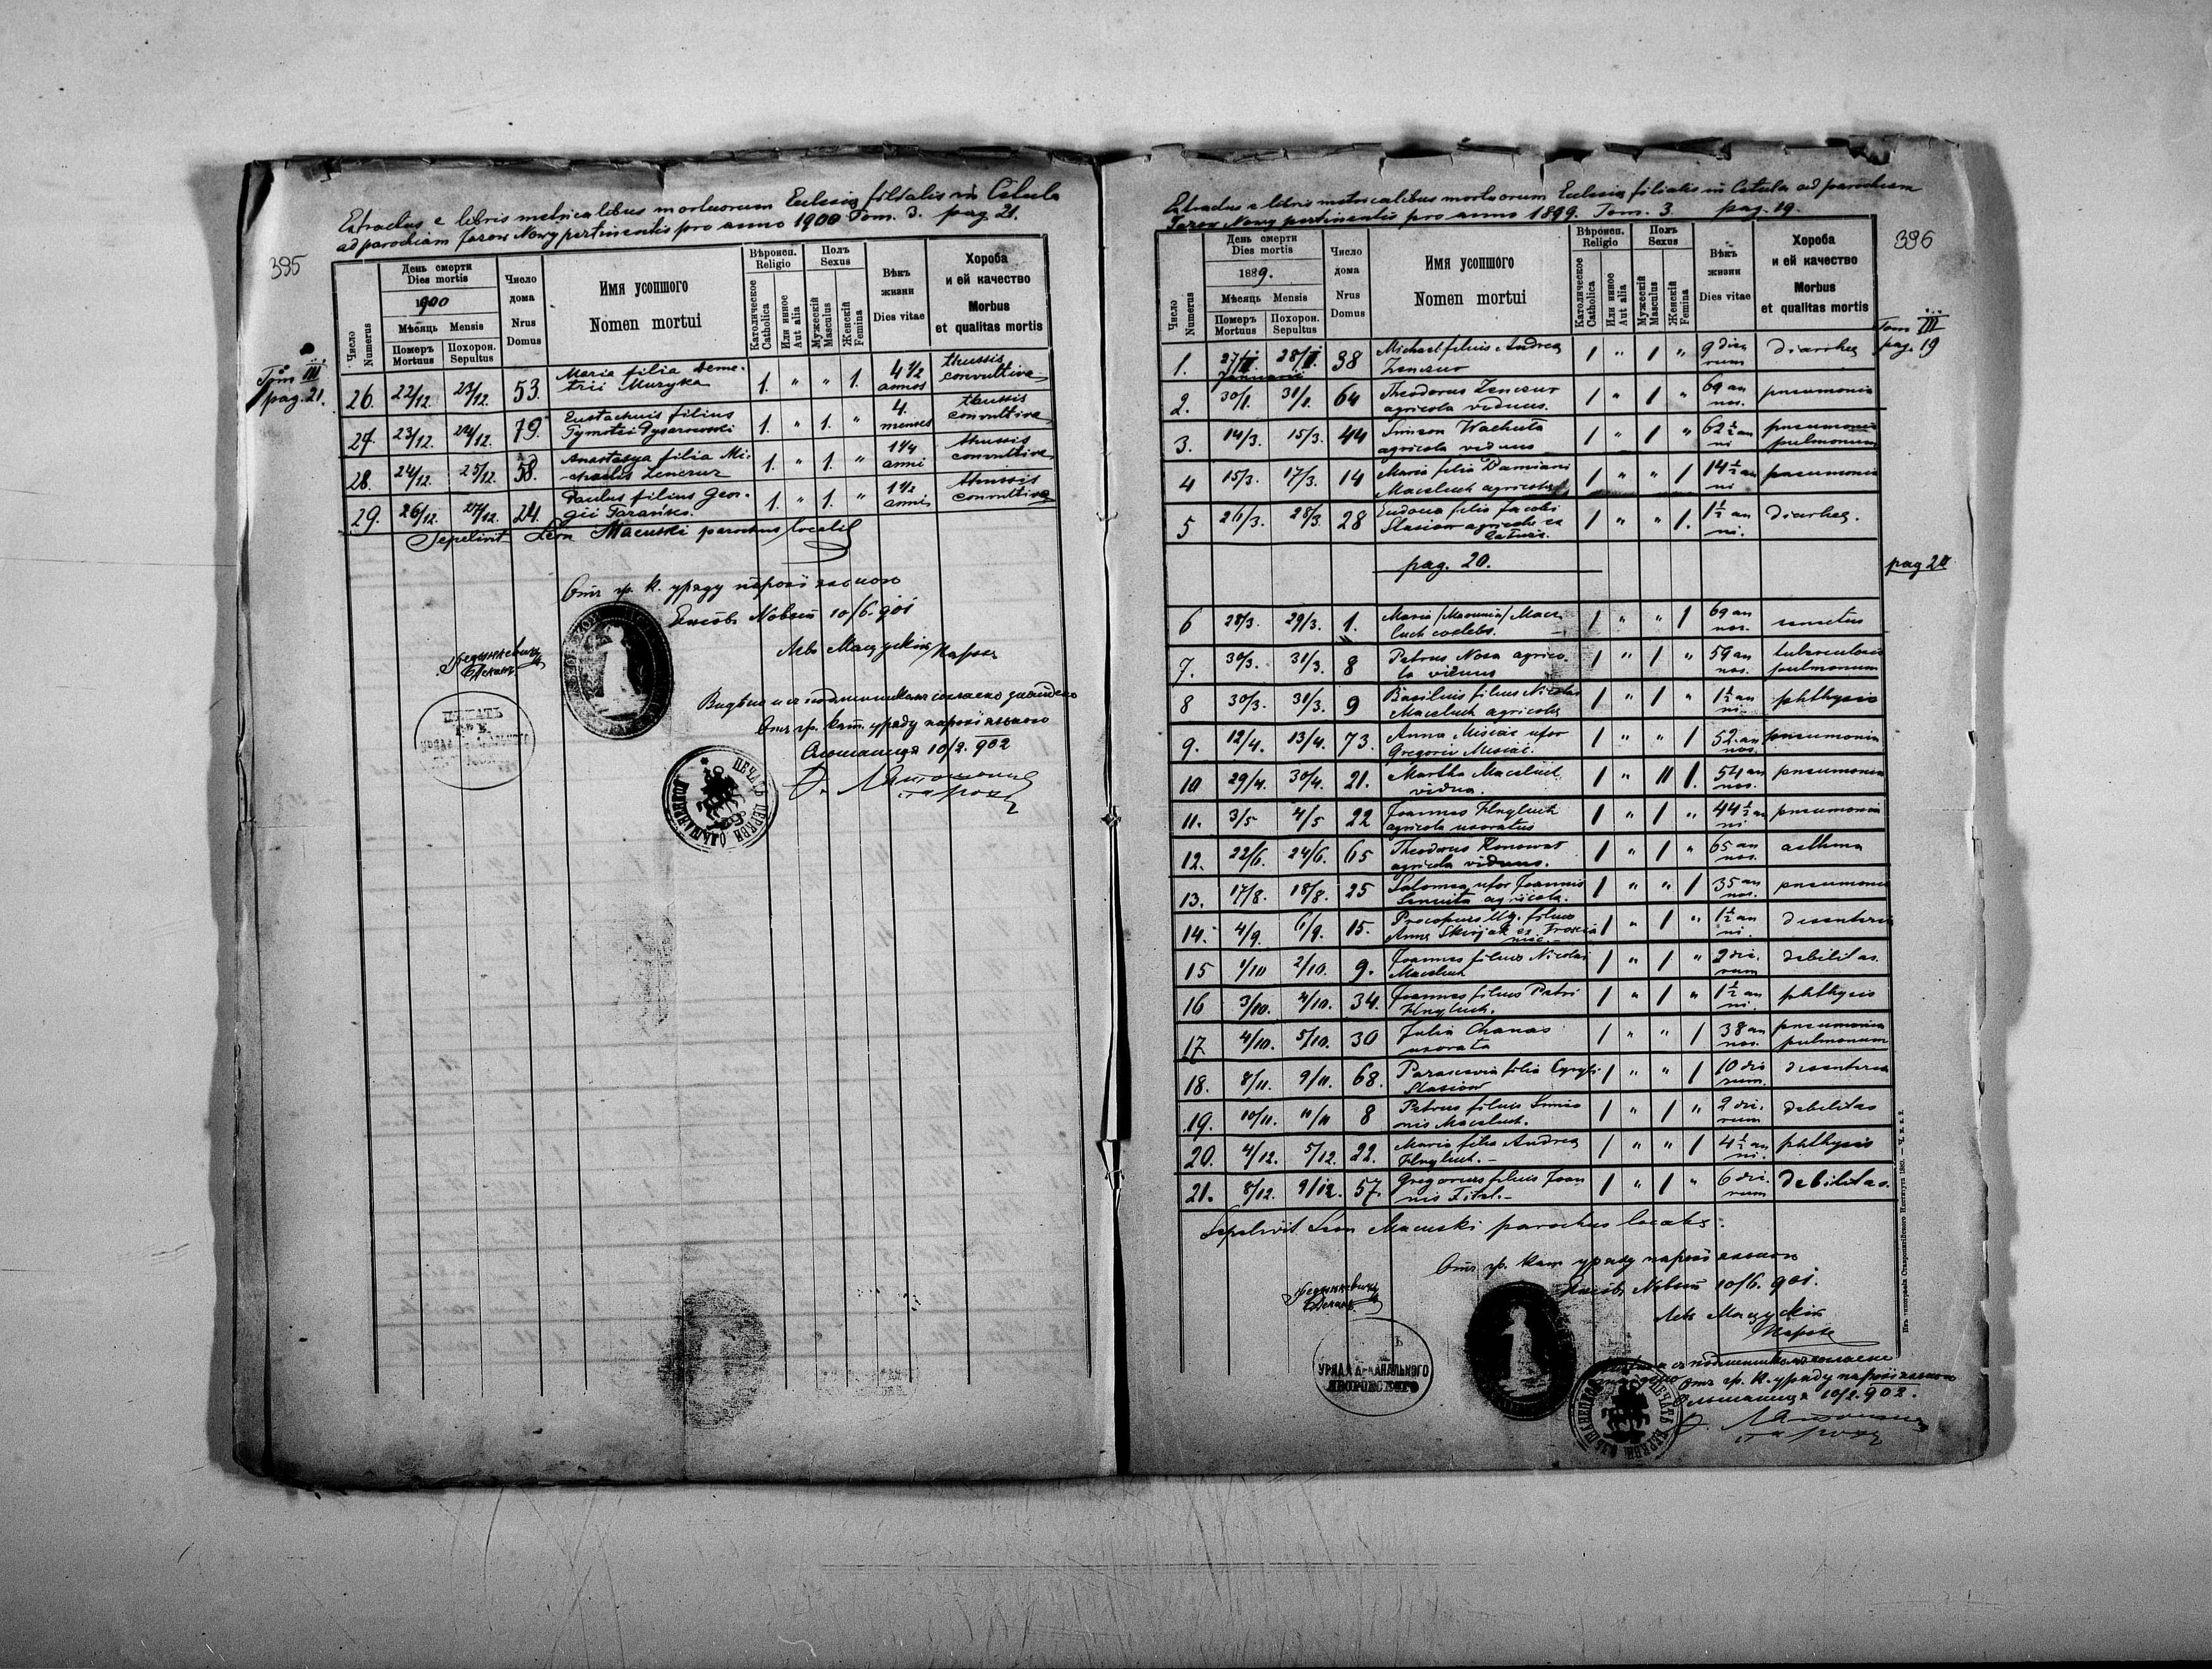 Extractus e libris metricalibus mortuorum Ecclesiæ filialis in Cetula
ad parochiam Jazow Nowy pertinentis pro anno 1900 Tom. 3. pag. 21.
395
День смерти
Dies mortis
1900
Мѣсяць Mensis
Померъ Mortuus
Похорон. Sepultus
Число Numerus
Число дома
Nrus Domus
Имя усопшого
Nomen mortui
Вѣроисп. Religio
Католическое Catholica
Или иное Aut alia
Полъ Sexus
Мужескій Masculus
Женскій Femina
Вѣкъ жизни
Dies vitae
Хороба
и ей качество
Morbus
et qualitas mortis
Tom III
pag. 21.
26. 22/12. 23/12. 53. Maria filia Deme-
trii Muzyka 1. " " 1. 4 1/2 annos thussis convultiva
27. 23/12. 24/12. 79. Eustachius filius
Tymotei 1. " 1. " 4. menses thussis convultiva
28. 24/12. 25/12. 58. Anastasya filia Mi-
chaelis Zenczur 1. " 1. " 1 1/4 anni thussis convultiva
29. 26/12. 27/12. 24. Paulus filius Geor-
gii 1. " 1. " 1 1/2 anni thussis convultiva
Sepelivit Leon Macuski parochus localis
Отъ гр. к. уряду парохіяльного
Язовъ Новый 10/6. 901
Левъ Мацускій Парох
Видѣно и съ подлинникомъ согласно знайдено
Отъ гр. кат. уряду парохіяльного
Ольшаница 10/2. 902
парох
ПЕЧАТЬ ЦЕРКВИ ОЛЬШАНИЦКОИ
Extractus e libris metricalibus mortuorum Ecclesiæ filialis in Cetula ad parochiam
Jazow Nowy pertinentis pro anno 1899. Tom. 3. pag. 19.
396
День смерти
Dies mortis
1889.
Мѣсяць Mensis
Померъ Mortuus
Похорон. Sepultus
Число Numerus
Число дома
Nrus Domus
Имя усопшого
Nomen mortui
Вѣроисп. Religio
Католическое Catholica
Или иное Aut alia
Полъ Sexus
Мужескій Masculus
Женскій Femina
Вѣкъ жизни
Dies vitae
Хороба
и ей качество
Morbus
et qualitas mortis
Tom III
pag. 19
1. 38 Michael filius Andrea
Zenczur 1 " 1 " 9 dierum diarrhea
2. 30/1. 31/1. 64 Theodorus Zenczur
agricola viduus. 1 " 1 " 69 annos. pneumonia
3. 14/3. 15/3. 44 Simeon Wachuta
agricola viduus 1 " 1 " 62 1/2 anni pneumonia pulmonum
4 15/3. 17/3. 14 Maria filia Damiani
Macelluch agricola 1 " " 1 14 1/2 anni pneumonia
5 26/3. 28/3. 28 Eudocia filia Jacobi
Stasiow agricola 1 " " 1. 1 1/2 anni. diarhea.
pag. 20.
pag 20
6 28/3. 29/3. 1. Maria
coelebs. 1 " " 1 69 annos. senectus
7. 30/3. 31/3. 8 Petrus Nosa agrico-
la viduus 1 " 1 " 59 annos. tuberculosis pulmonum
8 30/3. 31/3. 9 Basilius filius Nicolai
Macelluch agricola 1 " 1 " 1 1/2 anni phthysis
9. 12/4. 13/4. 73. Anna Misiac uxor
Gregorii Misiac. 1 " " 1 52 annos. pneumonia
10 29/4. 30/4. 21. Martha Macelluch
vidua. 1 " 11 1. 54 annos. pneumonia
11. 3/5 4/5 22 Joannes Hnyluch
agricola uxoratus 1 " 1 " 44 1/2 anni pneumonia
12. 22/6. 24/6. 65 Theodorus Konowat
agricola viduus. 1 " 1 " 65 annos. asthma
13. 17/8. 18/8. 25 Salomea uxor Joannis
agricola. 1 " " 1 35 annos. pneumonia
14. 4/9. 6/9. 15. Procopius illg. filius
Anna 1 " 1 " 1 1/2 anni desenteria
15 1/10 2/10. 9. Joannes filius Nicolai
Macelluch 1 " 1 " 2 dierum debilitas.
16 3/10. 4/10. 34. Joannes filius Petri
Hnyluch. 1 " 1 " 1 1/2 anni. phthysis
17 4/10. 5/10. 30 Julia Chanas
uxorata 1 " " 1 38 annos. pneumonia pulmonum
18. 8/11. 9/11. 68. Parascevia filia
Stasiow 1 " " 1 10 dierum. desenteria
19. 10/11. 11/11 8 Petrus filius Simeo-
nis Macelluch. 1 " 1 " 2 dierum debilitas
20. 4/12. 5/12. 22. Maria filia Andrea
Hnyluch. 1 " " 1 4 1/2 anni. phthysis
21. 8/12. 9/12. 57. Gregorius filius Joan-
nis Titel. 1 " 1 " 6 dierum debilitas.
Sepelivit Leon Macuski parochus localis.
Отъ гр. кат. уряду парохіяльного
Язовъ Новый 10/6. 901.
Левъ Мацускій
Парох
УРЯДА ДЕКАНАЛЬНОГО
ЯВОРОВСКОГО
съ подлинникомъ согласно
Отъ гр. к. уряду парохіяльного
Ольшаница 10/2. 902.
парох
ПЕЧАТЬ ЦЕРКВИ ОЛЬШАНИЦКОИ